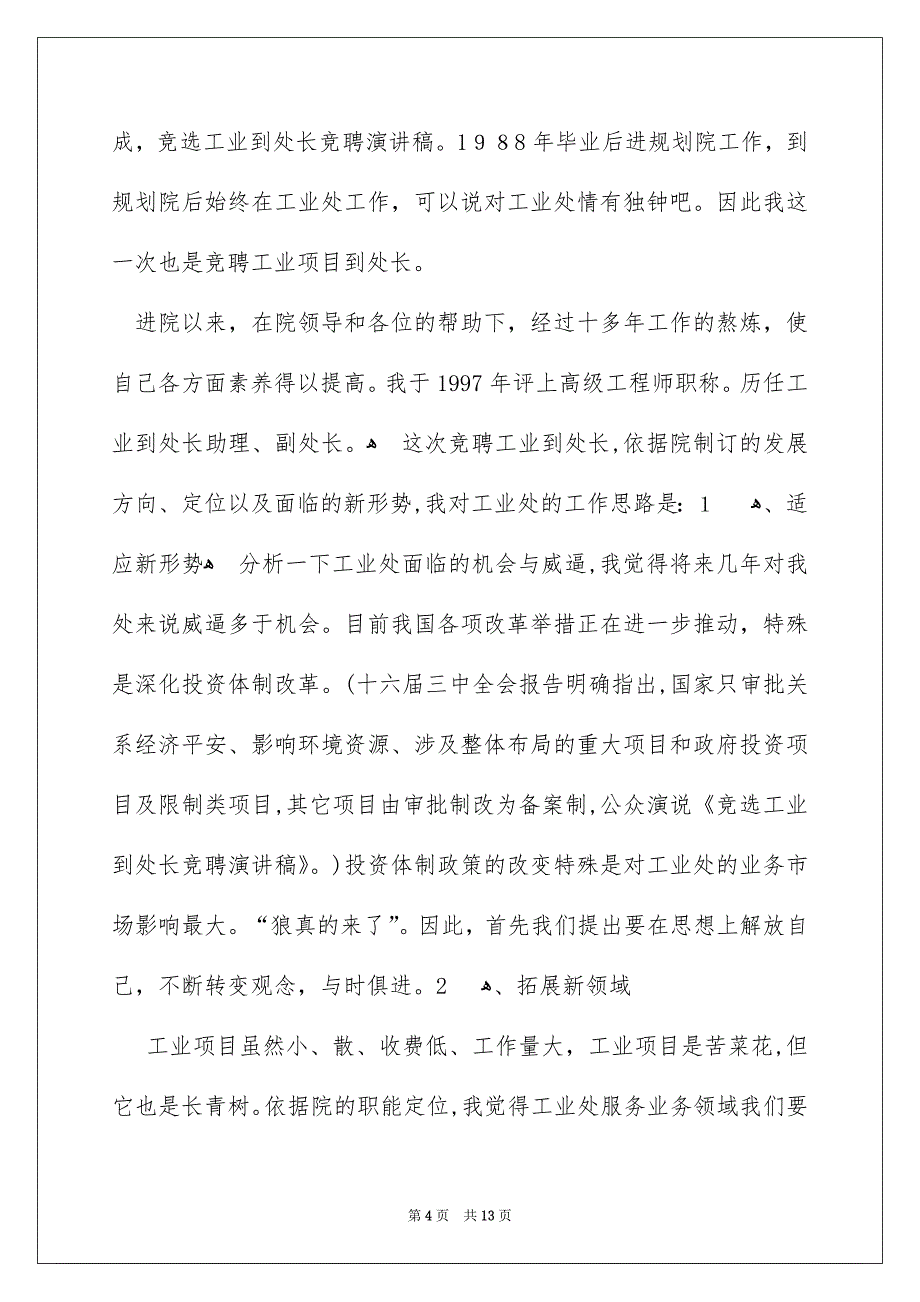 成，竞选工业到处长竞聘演讲稿。1988年毕业后进规划院工作，到
规划院后始终在工业处工作，可以说对工业处情有独钟吧。因此我这
一次也是竞聘工业项目到处长。
进院以来，在院领导和各位的帮助下，经过十多年工作的熬炼，使
自己各方面素养得以提高。我于1997年评上高级工程师职称。历任工
业到处长助理、副处长。ﻫ 这次竞聘工业到处长,依据院制订的发展
方向、定位以及面临的新形势,我对工业处的工作思路是：1 ﻫ、适
应新形势ﻫ 分析一下工业处面临的机会与威逼,我觉得将来几年对我
处来说威逼多于机会。目前我国各项改革举措正在进一步推动，特殊
是深化投资体制改革。(十六届三中全会报告明确指出,国家只审批关
系经济平安、影响环境资源、涉及整体布局的重大项目和政府投资项
目及限制类项目,其它项目由审批制改为备案制,公众演说《竞选工业
到处长竞聘演讲稿》。)投资体制政策的改变特殊是对工业处的业务市
场影响最大。“狼真的来了”。因此，首先我们提出要在思想上解放自
己，不断转变观念，与时俱进。2 ﻫ、拓展新领域
工业项目虽然小、散、收费低、工作量大，工业项目是苦菜花,但
它也是长青树。依据院的职能定位,我觉得工业处服务业务领域我们要
第 4 页 共 13 页